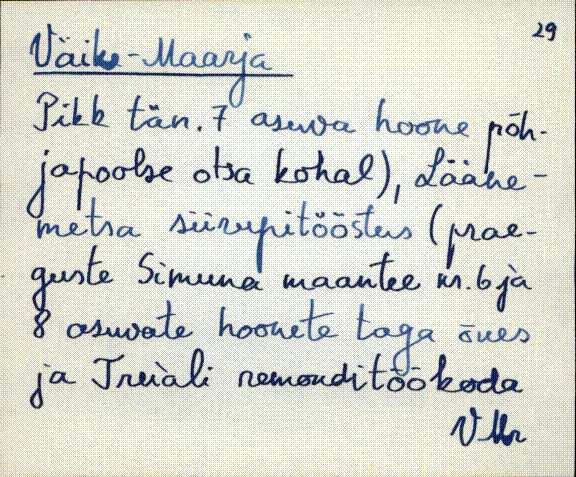 29
Väike-Maarja
Pikk tän. 7 asuva hoone põh-
japoolse otsa kohal), Lääne-
metsa siirupitööstus (prae-
guste Simuna maantee nr. 6 ja
8 asuvate hoonete taga õues
ja Treiali remonditöökoda